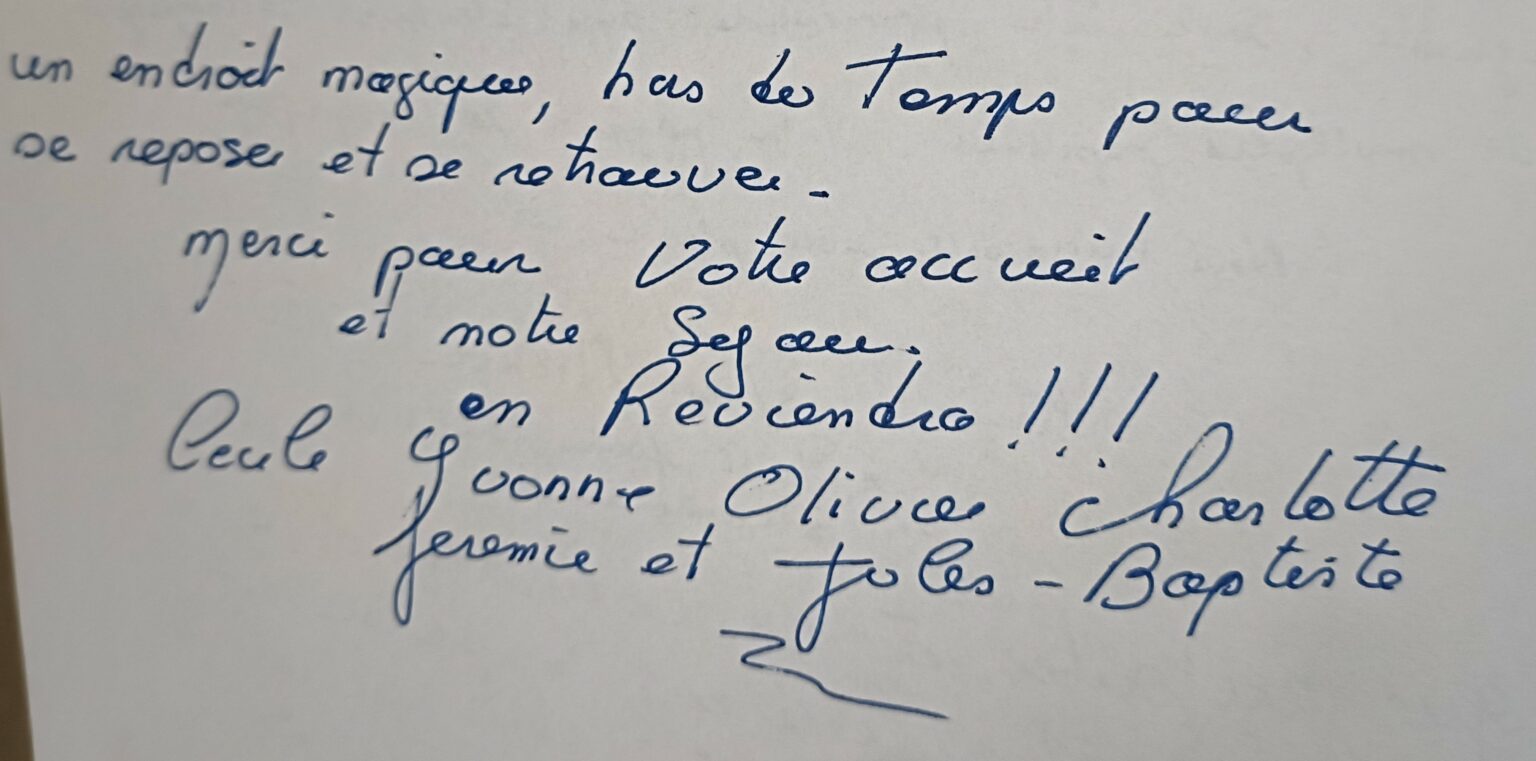 un endroit magique, hors du Temps pour
se reposer et se retrouver.
merci pour Votre accueil
et notre Sejour.
on Reviendra !!!
Cecile Yvonne Olivier Charlotte
Jeremie et Jules-Baptiste